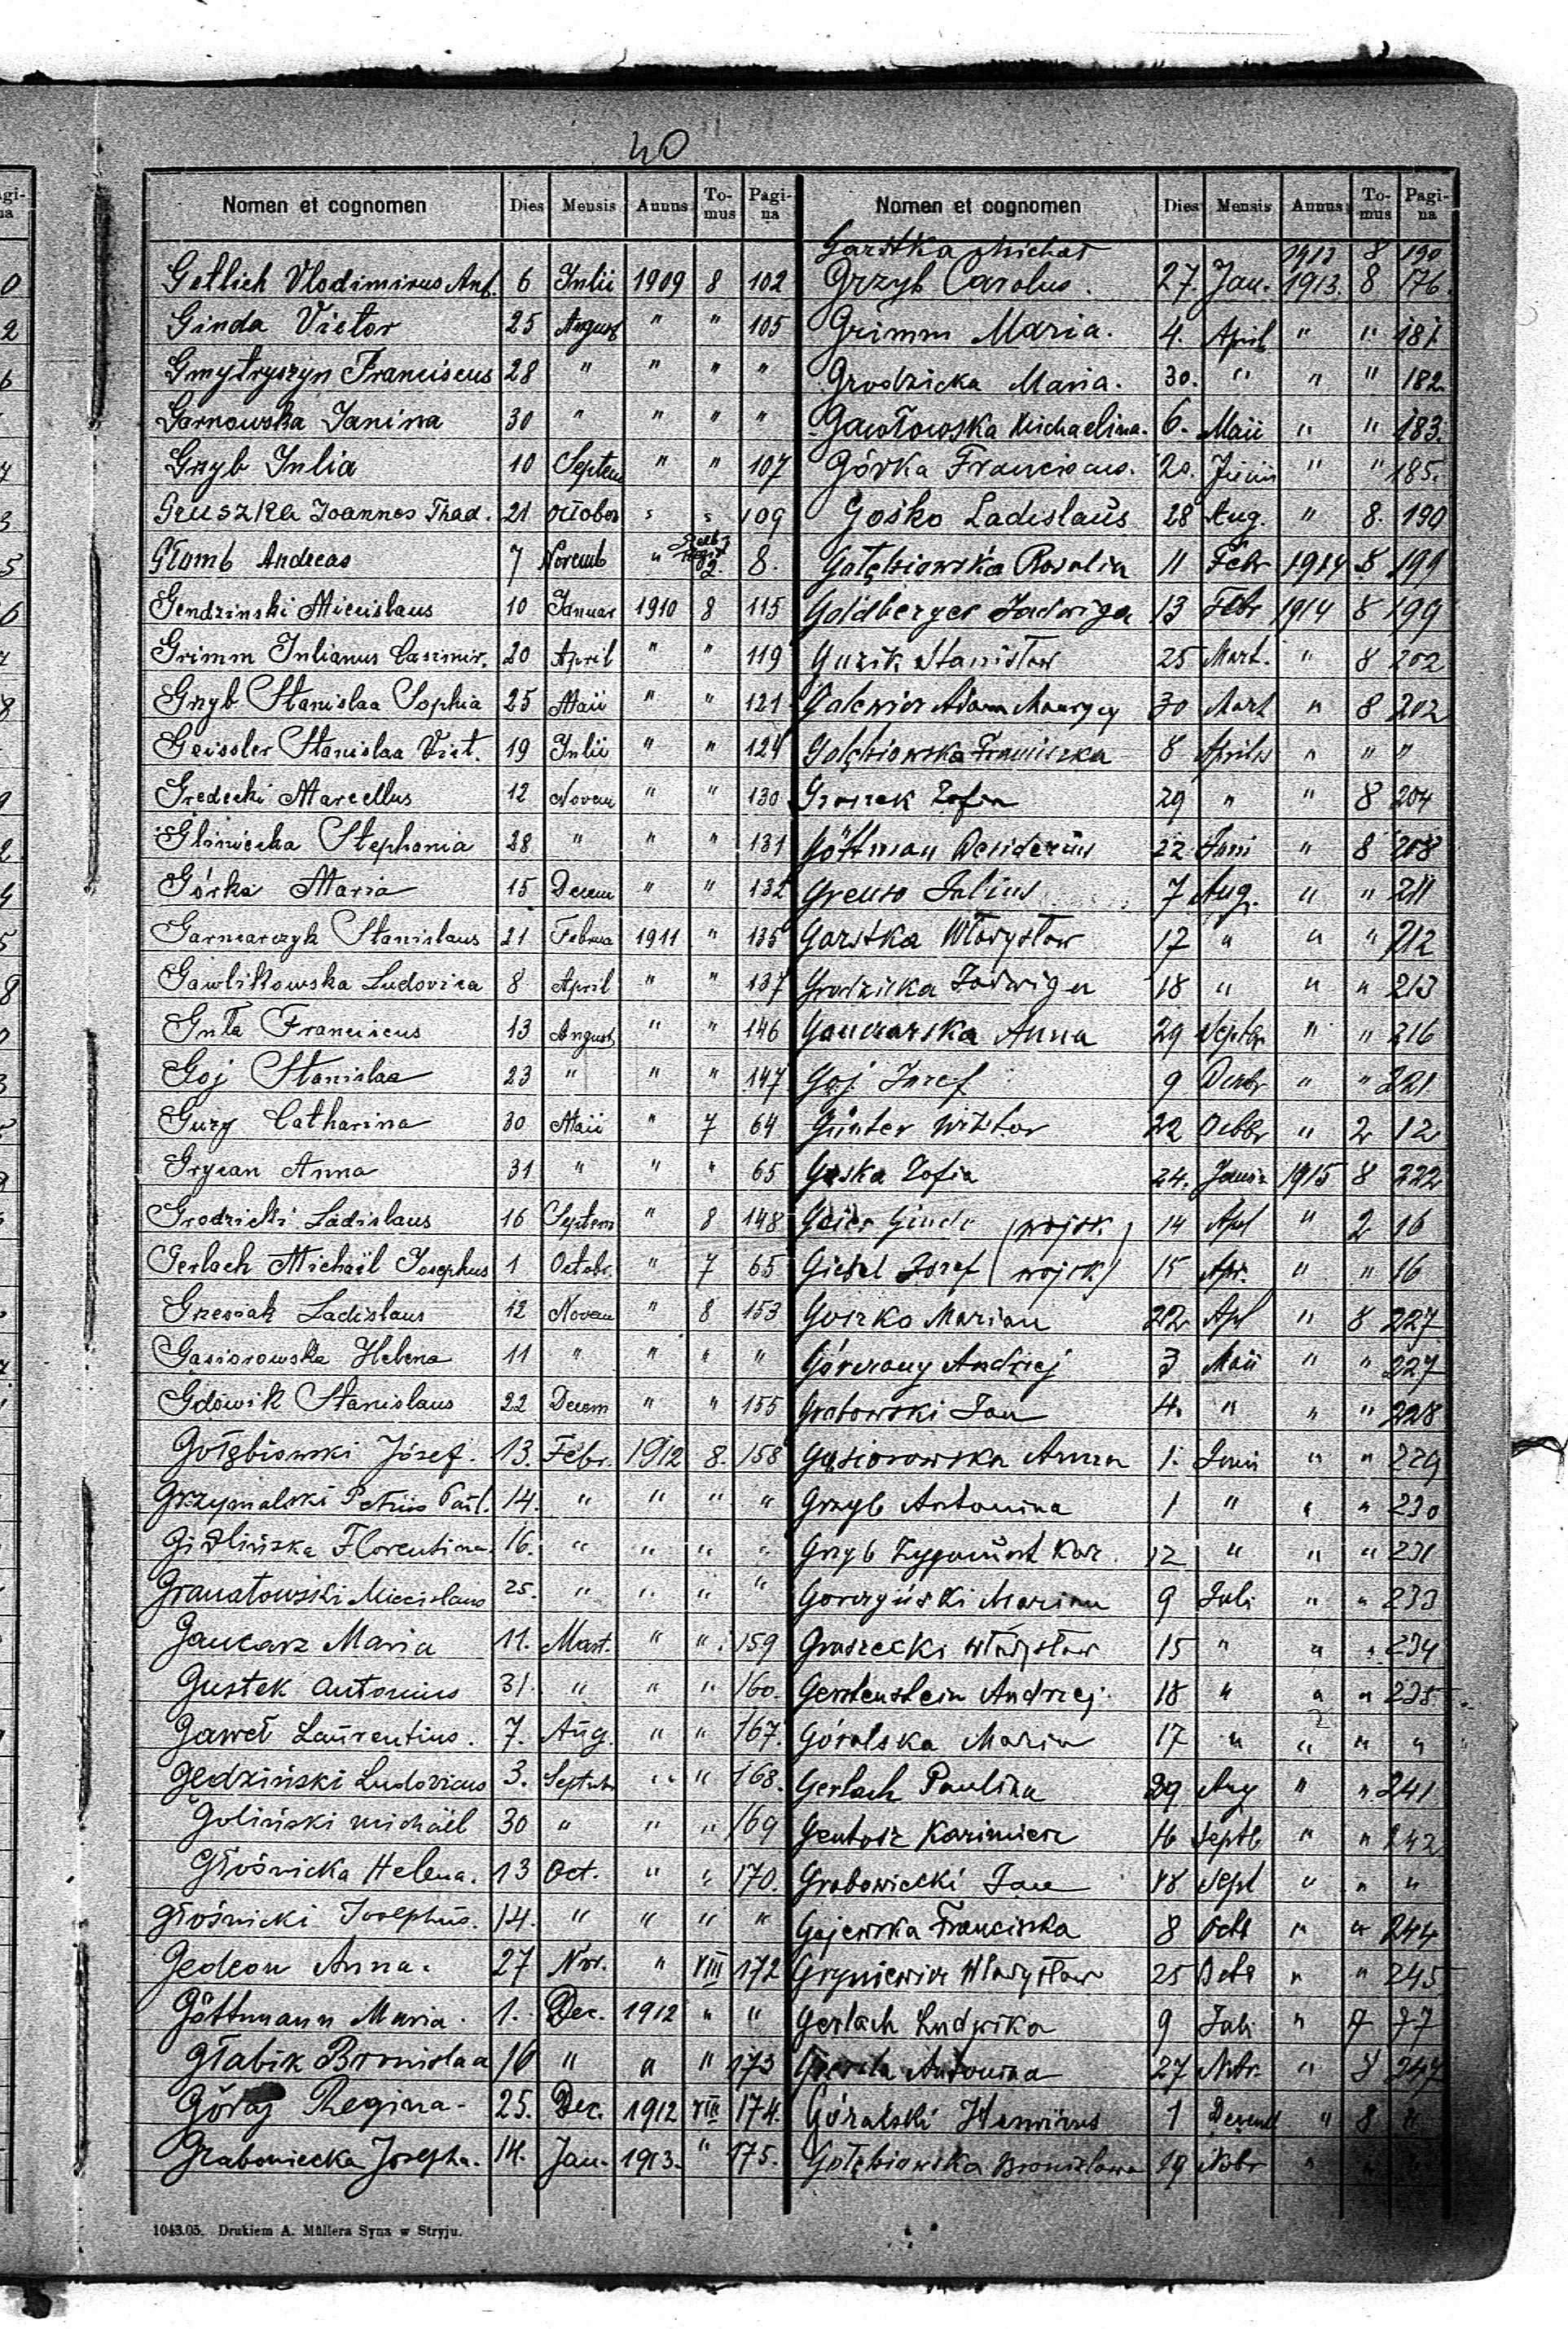 40
Nomen et cognomen Dies Mensis Annus To-mus Pagi-na
Gellich Vlodimirus Ant. 6 Julii 1909 8 102
Ginda Victor 25 August " " 105
Gmytryszyn Franciscus 28 " " " "
Garnowska Janina 30 " " " "
Grzyb Julia 10 Septem " " 107
Gruszka Joannes Thad. 21 October " " 109
Głomb Andreas 7 Novemb " 2. 8.
Gendzinski Miecislaus 10 Januar 1910 8 115
Grimm Julianus Casimir. 20 April " " 119
Grzyb Stanislaa Sophia 25 Maii " " 121
Geissler Stanislaa Vict. 19 Julii " " 124
Gredecki Marcellus 12 Novem " " 130
Glinicka Stephania 28 " " " 131
Górka Maria 15 Decem " " 132
Garncarczyk Stanislaus 21 Februa 1911 " 135
Gawlikowska Ludovica 8 April " " 137
Guła Franciscus 13 August " " 146
Goj Stanislaa 23 " " " 147
Gury Catharina 30 Maii " 7 64
Grycan Anna 31 " " " 65
Grodzicki Ladislaus 16 Septem " 8 148
Gerlach Michaël Josephus 1 Octobr. " 7 65
Grzesiak Ladislaus 12 Novem " 8 153
Gąsiorowska Helena 11 " " " "
Gdowik Stanislaus 22 Decem " " 155
Gołębiowski Józef. 13. Febr. 1912 8. 158
Grzymalski Petrus Paul. 14. " " " "
Gidlińska Florentina. 16. " " " "
Granatowski Miecislaus 25. " " " "
Gaucarz Maria 11. Mart. " " 159
Gustek Antonius 31. " " " 160.
Gaweł Laurentius. 7. Aug. " " 167.
Gedziński Ludovicus 3. Septemb " " 168.
Goliński Michäel 30 " " " 169
Głośnicka Helena. 13 Oct. " " 170.
Głośnicki Josephus. 14. " " " "
Gedeon Anna. 27 Nov. " VIII 172
Göttmann Maria. 1. Dec. 1912 " "
Głabik Bronislaa 16 " " " 173
Góraj Regina. 25. Dec. 1912 VIII 174.
Graboniecka Josepha. 14. Jan. 1913. " 175.
1043.05. Drukiem A. Müllera Syna w Stryju.
Nomen et cognomen Dies Mensis Annus To-mus Pagi-na
Garstka Michał 1913 8 190
Grzyb Carolus. 27. Jan. 1913. 8 176.
Grimm Maria. 4. April " " 181.
Grodzicka Maria. 30. " " " 182.
Gawłowska Michaelina. 6. Maii " " 183.
Górka Franciscus. 20. Junii " " 185.
Gośko Ladislaus 28 Aug. " 8. 190
Gołębiowska Rosalia 11 Febr 1914 8 199
Goldberger Jadwiga 13 Febr 1914 8 199
Guzik Stanisław 25 Mart. " 8 202
Galewicz Adam Maurycy 30 Mart " 8 202
Gołębiowska Franciszka 8 Aprilis " " "
Zofia 29 " " 8 204
Göttman Desiderius 22 Juni " 8 208
Julius 7 Aug. " " 211
Garstka Władysław 17 " " " 212
Grodzicka Jadwiga 18 " " " 213
Gancarska Anna 29 Septbr " " 216
Goj Józef 9 Decbr " " 221
Günter Wiktor 22 Octbr " 2 12
Gąska Zofia 24. Januar 1915 8 222
(wojsk) 14 Apl " 2 16
Giebel Józef (wojsk) 15 Apr. " " 16
Marian 22 Apl " 8 227
Andrzej 3 Maii " " 227
Grabowski Jan 4. " " " 228
Gąsiorowska Anna 1. Junii " " 229
Grzyb Antonina 1 " " " 230
Grzyb Zygmunt Kaz. 12 " " " 231
Gorczyński Marian 9 Juli " " 233
Graszecki Władysław 15 " " " 234
Gerstenstein Andrzej. 18 " " " 235
Góralska Maria 17 " " " "
Gerlach Paulina 29 Aug " " 241
Kazimierz 16 Septb " " 242
Grabowiecki Jan 18 Sept " " "
Gajewska Franciszka 8 Octb " " 244
Gryniewicz Władysław 25 Octb " " 245
Gerlach Ludwika 9 Juli " 7 77
Antonina 27 Nobr. " 8 247
Góralski Henricus 1 Decemb " 8 "
Gołębiowska Bronisława 29 Nobr " "